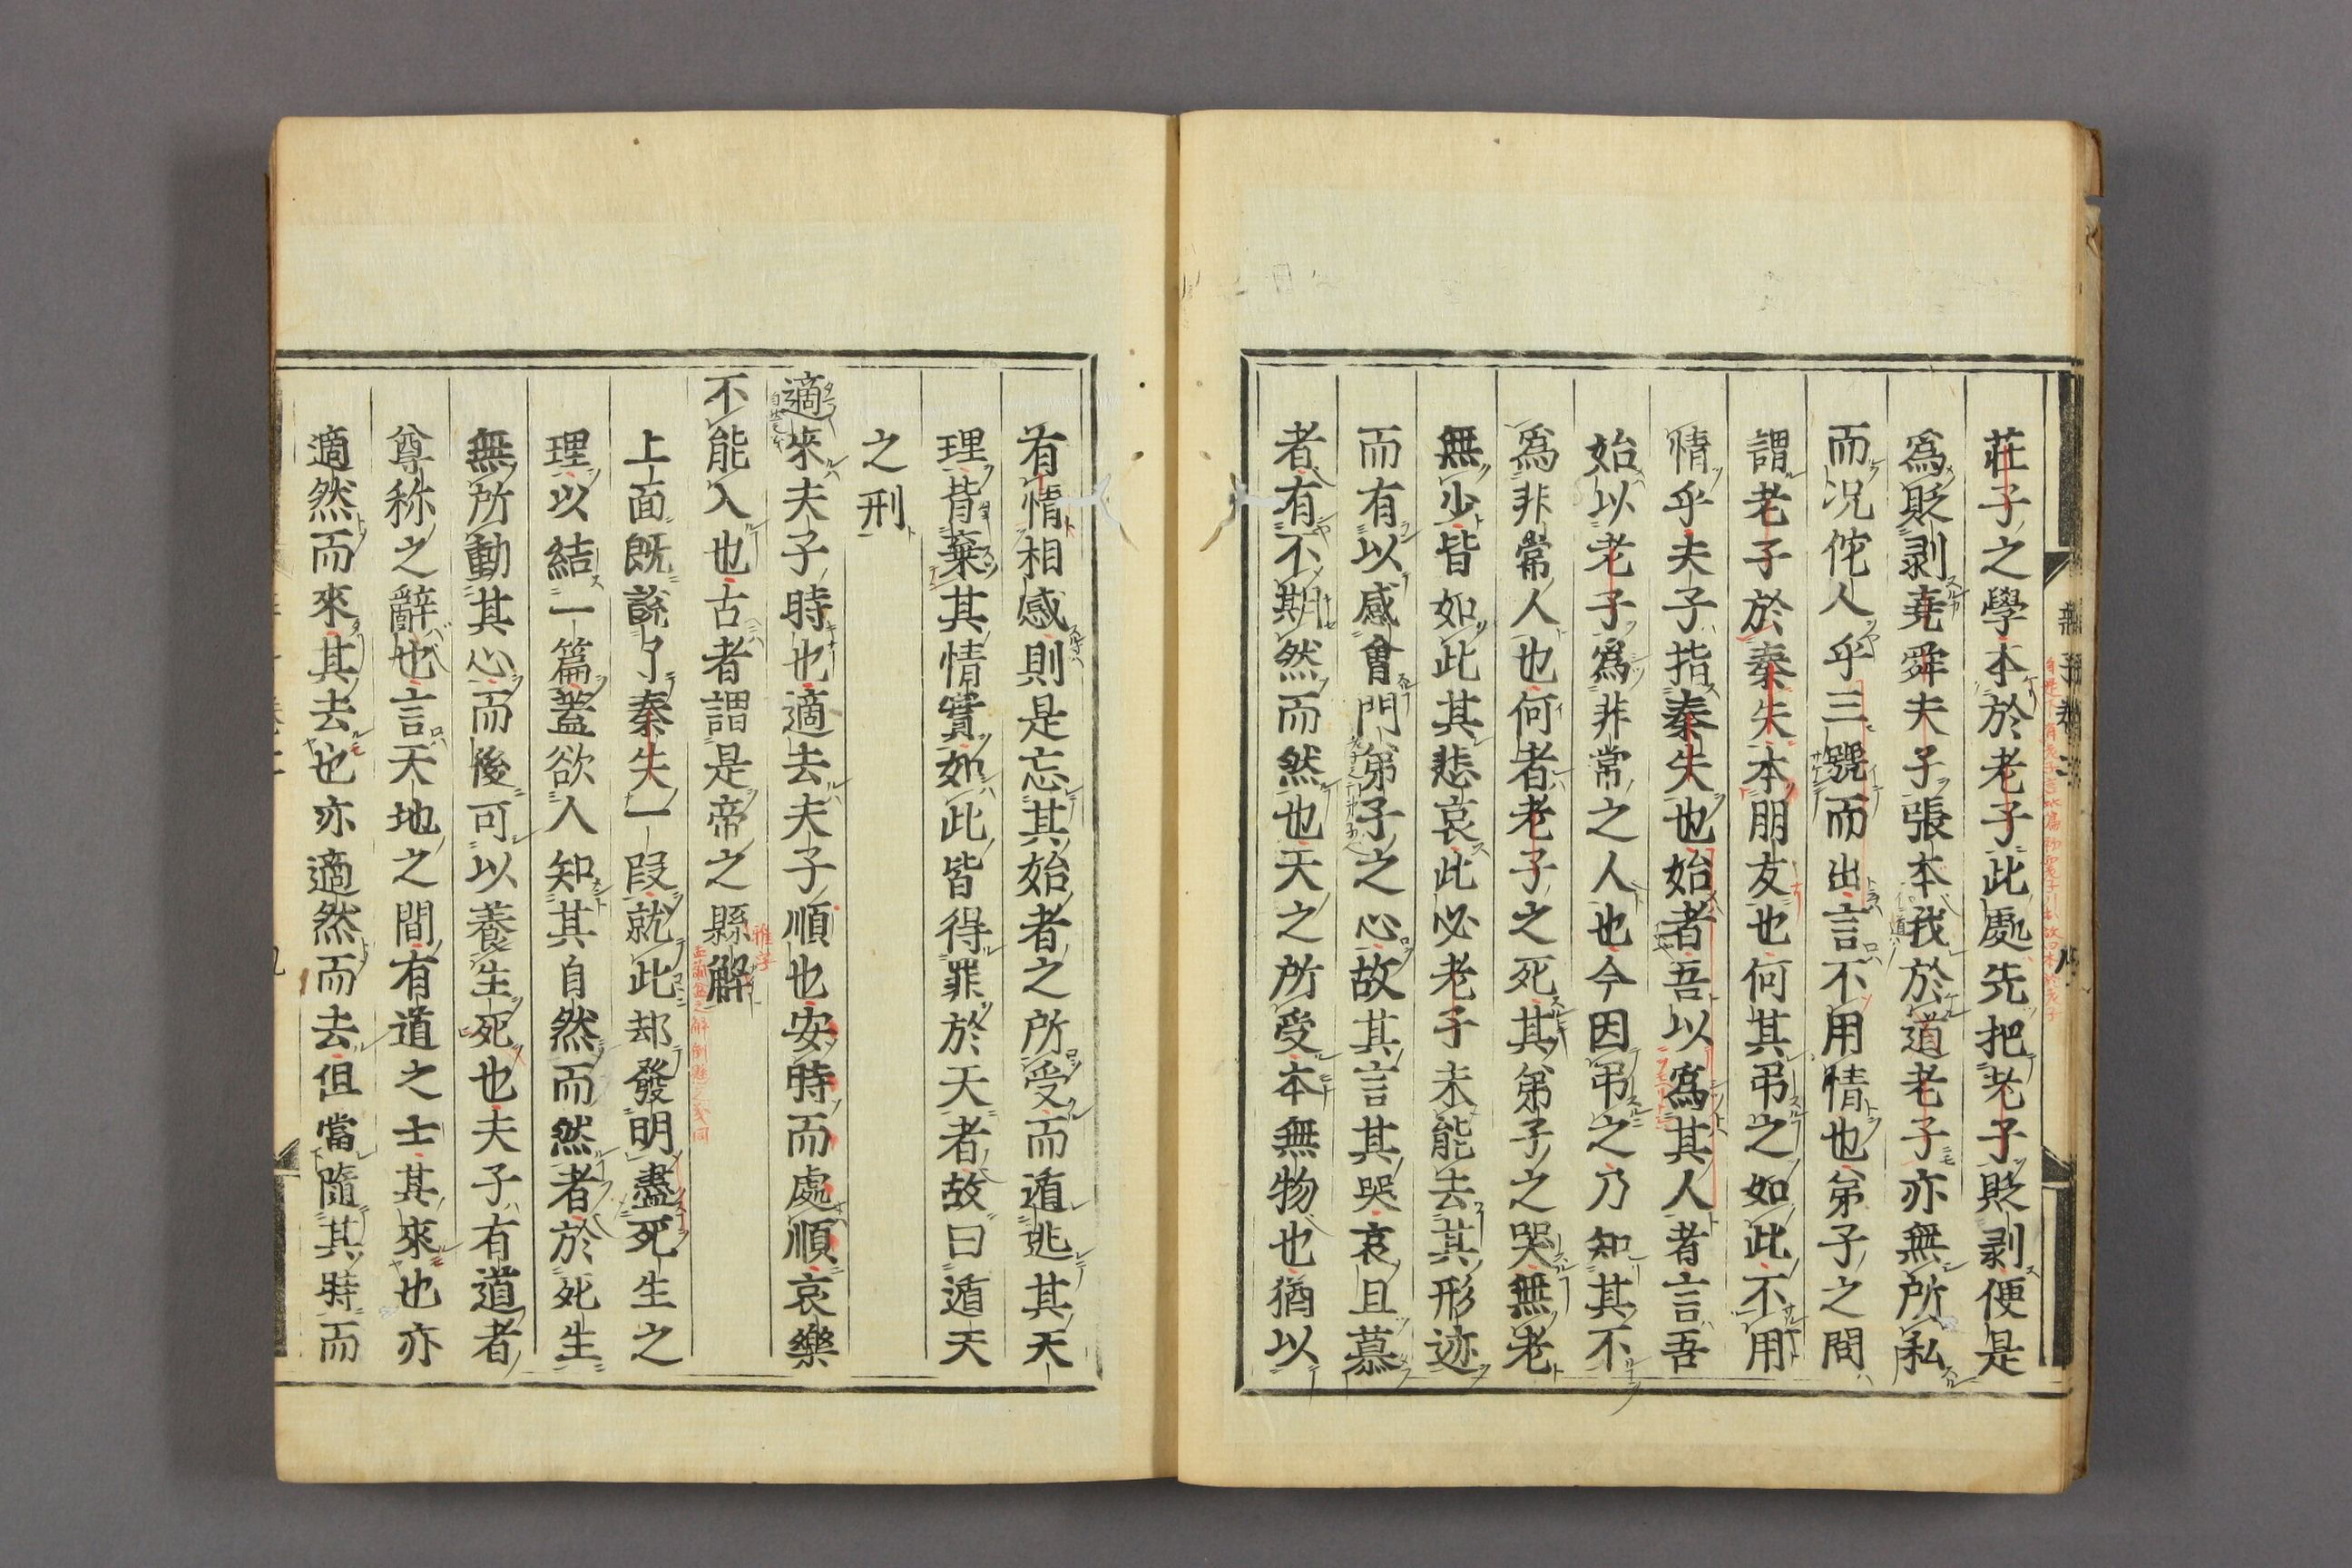 莊子之學本於老子此處先把老子貶剥便是
爲貶剥堯舜夫子張本我於道老子亦無所私
而况侘人乎三號而出言不用情也弟子之間
謂老子於秦失本朋友也何其弔之如此不用
情乎夫子指秦失也始者吾以爲其人者言吾
始以老子爲非常之人也今因弔之乃知其不
爲非常人也何者老子之死其弟子之哭無老
無少皆如此其悲哀此必老子未能去其形迹
而有以感會門弟子之心故其言其哭哀且慕
者有不期然而然也天之所受本無物也猶以
有情相感則是忘其始者之所受而遁逃其天
理背棄其情實如此皆得罪於天者故曰遁天
之刑
適來夫子時也適去夫子順也安時而處順哀樂
不能入也古者謂是帝之縣解
上面既說了秦失一段就此却發明盡死生之
理以結一篇蓋欲人知其自然而然者於死生
無所動其心而後可以養生死也夫子有道者
尊称之辭也言天地之間有道之士其來也亦
適然而來其去也亦適然而去但當隨其時而